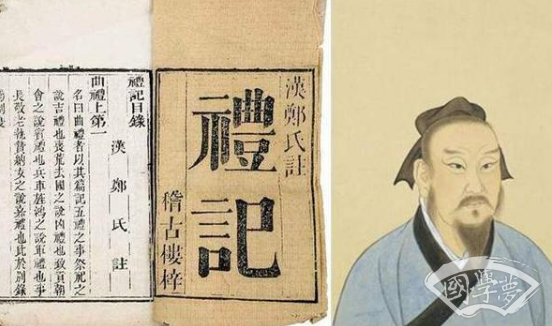 漢鄭氏註
禮記
稽古樓梓
禮記目錄
漢鄭氏註
曲禮上第一
名曰曲禮者以其篇記五禮之事祭祀之
說吉禮也喪荒去國之說凶禮也致貢朝
會之說賓禮也兵車旌鴻之說軍禮也事
長敬老執贄納女之說嘉禮也此於別錄
國學夢